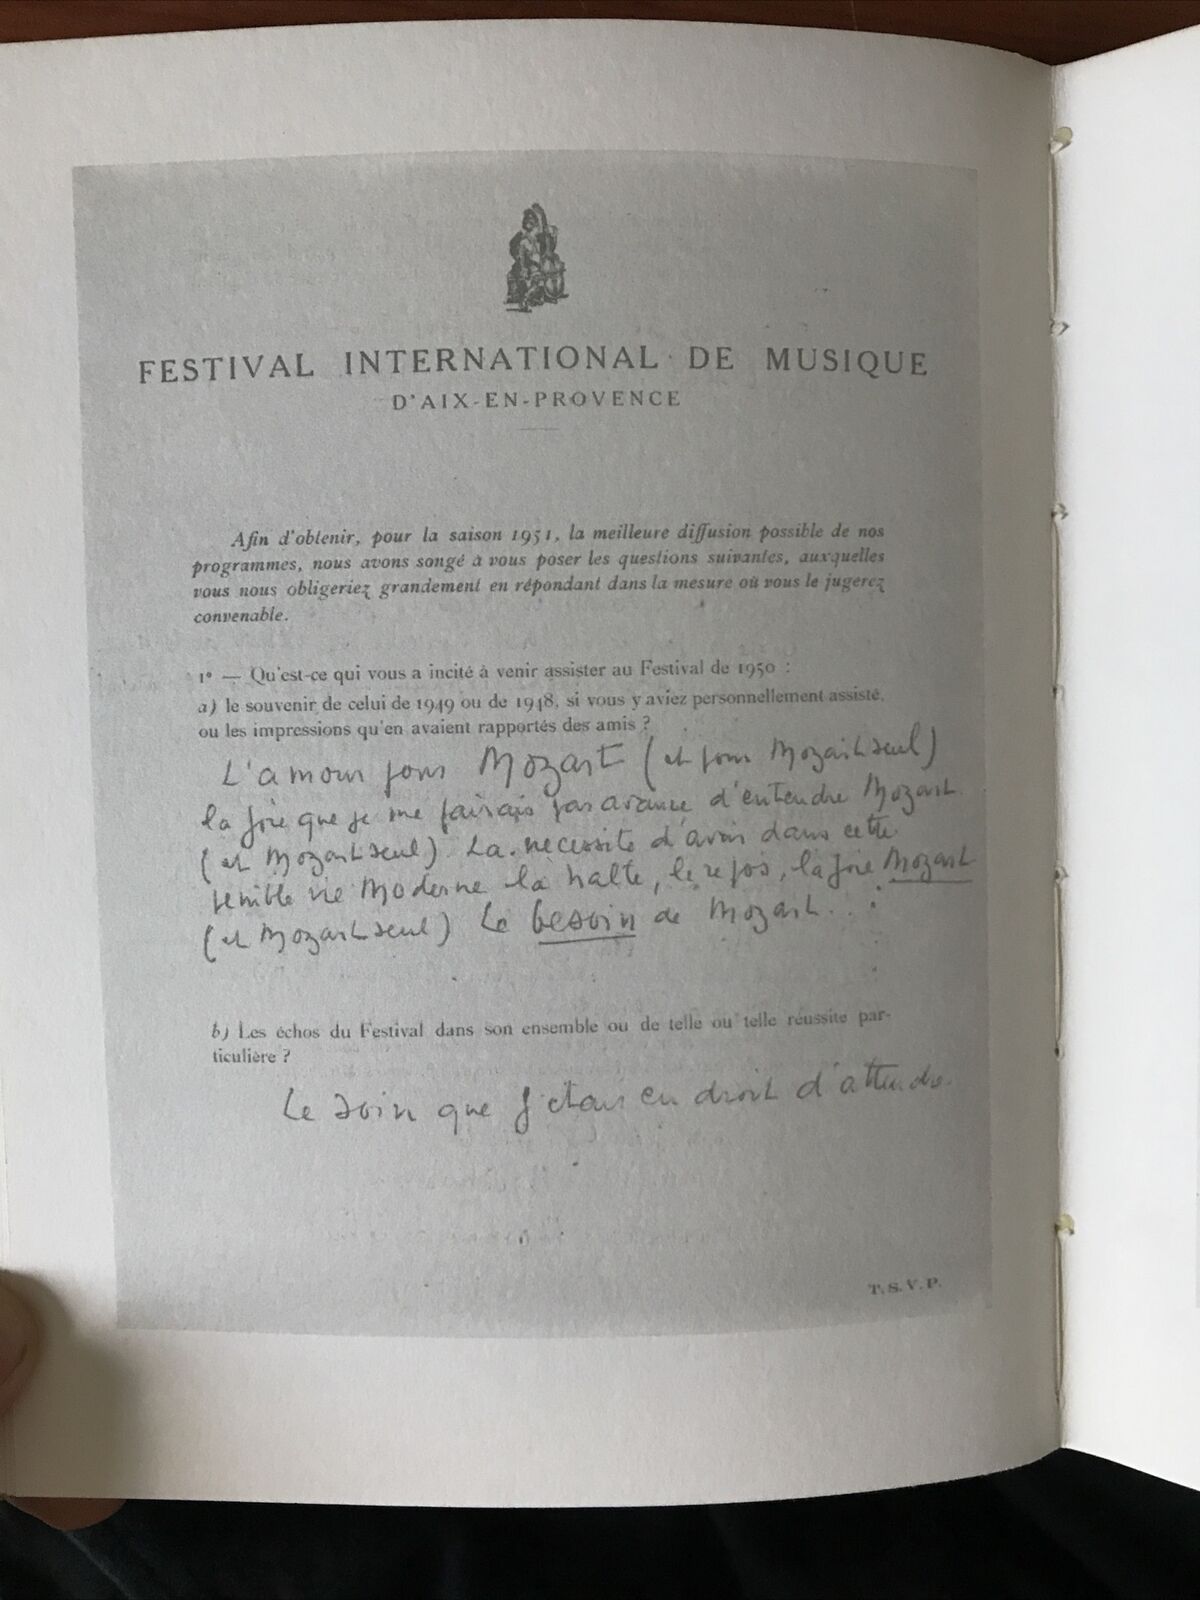 FESTIVAL INTERNATIONAL DE MUSIQUE
D'AIX-EN-PROVENCE
Afin d'obtenir, pour la saison 1951, la meilleure diffusion possible de nos
programmes, nous avons songé à vous poser les questions suivantes, auxquelles
vous nous obligeriez grandement en répondant dans la mesure où vous le jugerez
convenable.
1° — Qu'est-ce qui vous a incité à venir assister au Festival de 1950 :
a) le souvenir de celui de 1949 ou de 1948, si vous y aviez personnellement assisté,
ou les impressions qu'en avaient rapportés des amis ?
L'amour pour Mozart (et pour Mozart seul)
la joie que je me faisais par avance d'entendre Mozart
(et Mozart seul). La necessité d'avoir dans cette
terrible vie Moderne la halte, le repos, la joie Mozart
(et Mozart seul) Le besoin de Mozart...
b) Les échos du Festival dans son ensemble ou de telle ou telle réussite par-
ticulière ?
Le soin que j'étais en droit d'attendre.
T. S. V. P.